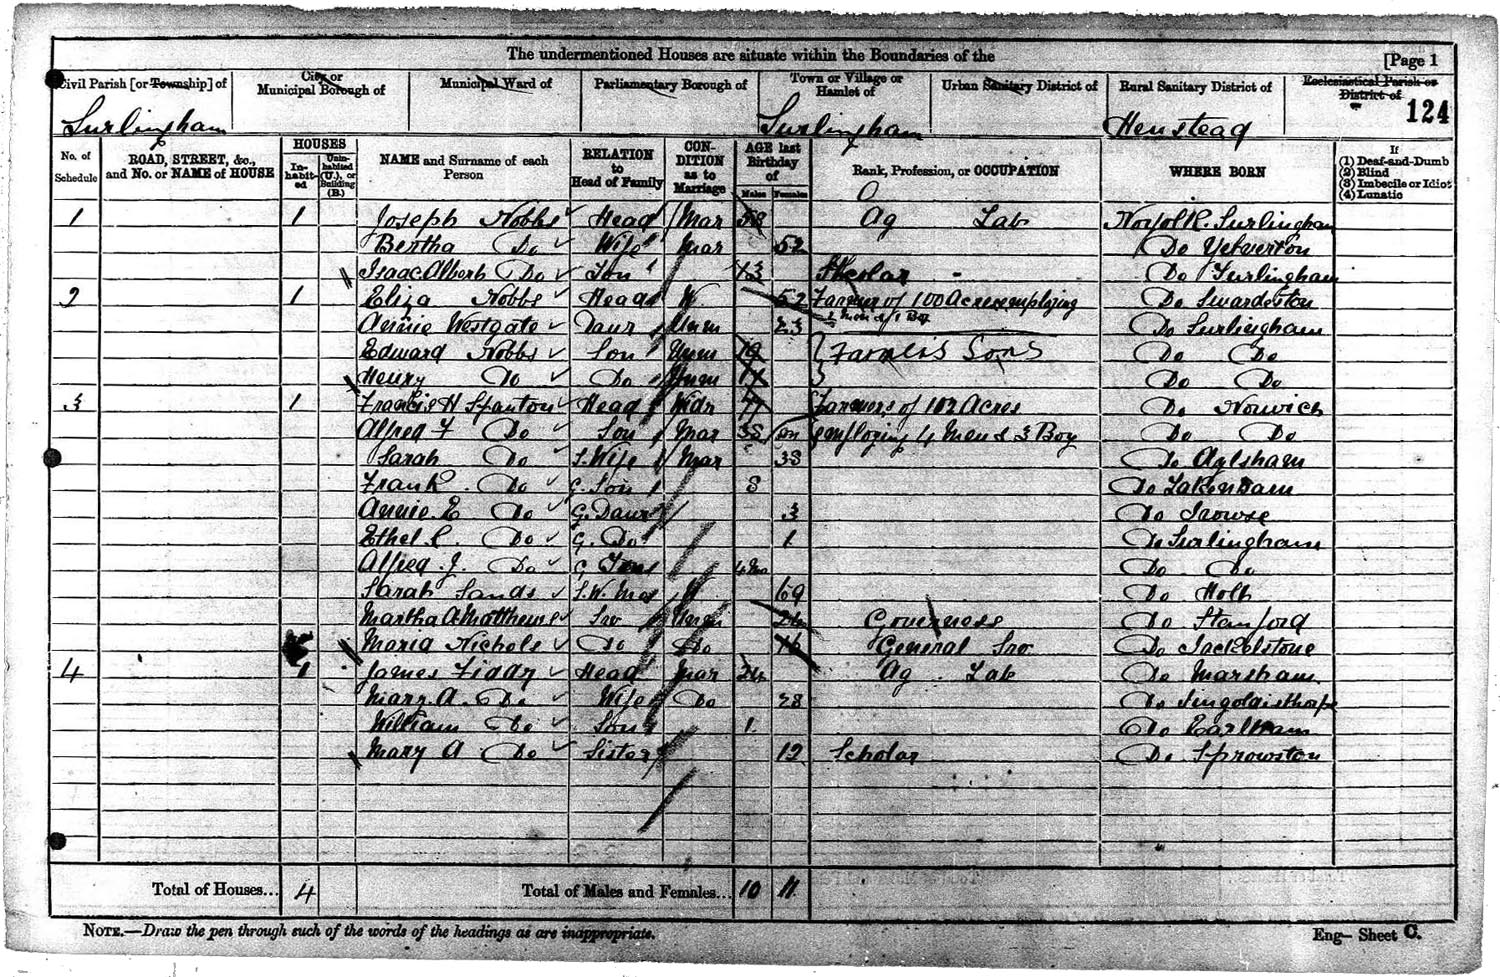 The undermentioned Houses are situate within the Boundaries of the
[Page 1
Civil Parish [or Township] of
City or Municipal Borough of
Municipal Ward of
Parliamentary Borough of
Town or Village or Hamlet of
Urban Sanitary District of
Rural Sanitary District of
Ecclesiastical Parish or District of
124
Surlingham Surlingham Henstead
No. of Schedule
ROAD, STREET, &c., and No. or NAME of HOUSE
HOUSES
In-habit-ed
Unin-habited (U.), or Building (B.)
NAME and Surname of each Person
RELATION to Head of Family
CON-DITION as to Marriage
AGE last Birthday of
Males Females
Rank, Profession, or OCCUPATION
WHERE BORN
If
(1) Deaf-and-Dumb
(2) Blind
(3) Imbecile or Idiot
(4) Lunatic
1 1 Joseph Nobbs Head Mar Ag Lab Norfolk Surlingham
Bertha Do Wife Mar 52 Do Yelverton
Isaac Albert Do Son 13 Scholar Do Surlingham
2 1 Eliza Nobbs Head W 52 Farmer of 100 Acres employing Do Swardeston
Annie Westgate Daur Unm 23 Do Surlingham
Edward Nobbs Son Unm 19 Farmers Sons Do Do
Henry Do Do Unm Do Do
3 1 Francis H Spanton Head Widr Farmers of 102 Acres Do Norwich
Alfred F Do Son Mar 38 employing 4 Men & 3 Boy Do Do
Sarah Do S. Wife Mar 38 Do Aylsham
Frank Do G. Son 8 Do Lakenham
Annie E Do G. Daur 3 Do Trowse
Ethel C. Do G. Do 1 Do Surlingham
Alfred J. Do G Son 4 Mo Do Do
Sarah Sands S. W. Mo W 69 Do Holt
Martha A Matthews Srv Unm Governess Do Stanford
Maria Nichols Do Do 16 General Srv Do
4 1 James Fiddy Head Mar 24 Ag Lab Do Marsham
Mary A. Do Wife Do 28 Do Ingoldisthorpe
William Do Son 1 Do Earlham
Mary A Do Sister 12 Scholar Do Sprowston
Total of Houses... 4 Total of Males and Females... 10 11
NOTE.—Draw the pen through such of the words of the headings as are inappropriate.
Eng— Sheet C.